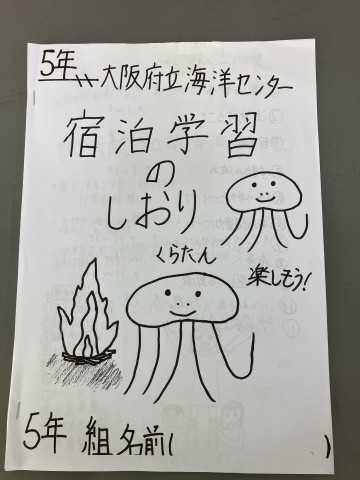 5年〃大阪府立海洋センター
宿泊学習
の
しおり
くらたん
楽しもう!
5年 組 名前( )